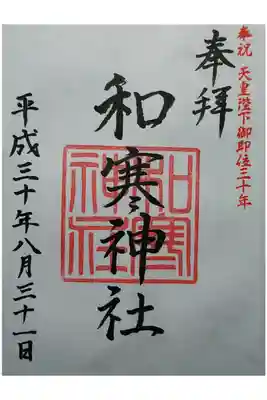 奉祝 天皇陛下御即位三十年
奉拝
和寒神社
和寒神社
平成三十年八月三十一日